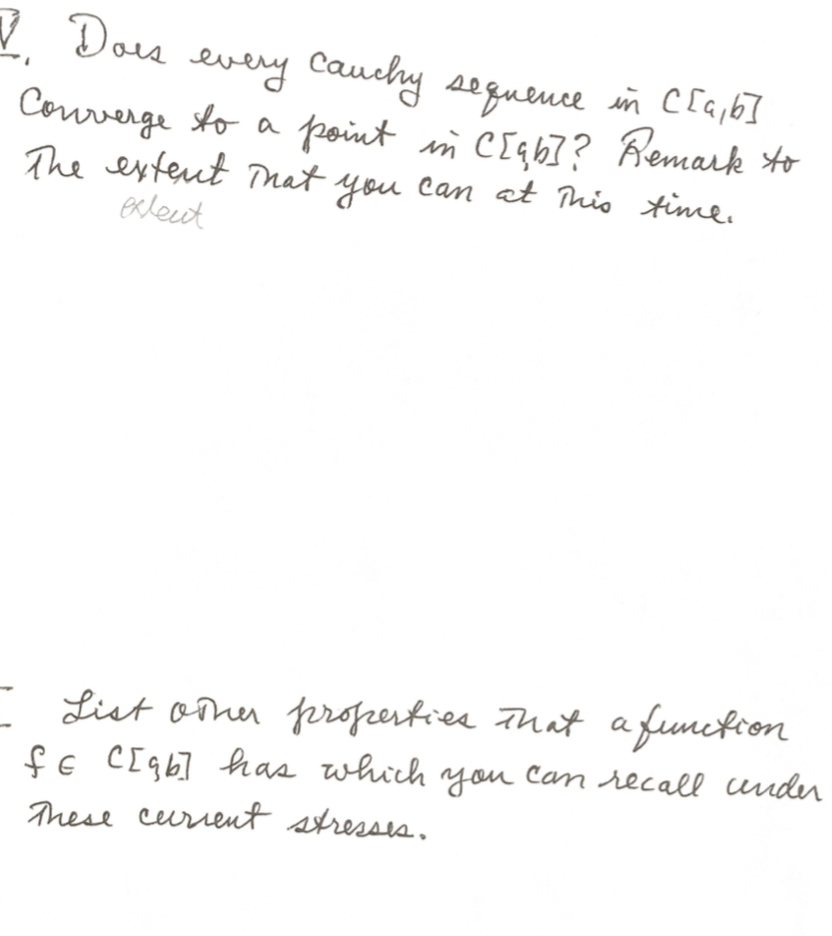 V. Does every Cauchy sequence in C[a,b]
Converge to a point in C[a,b]? Remark to
The extent That you can at This time.
extent
I List other properties That a function
f ∈ C[a,b] has which you can recall under
These current stresses.